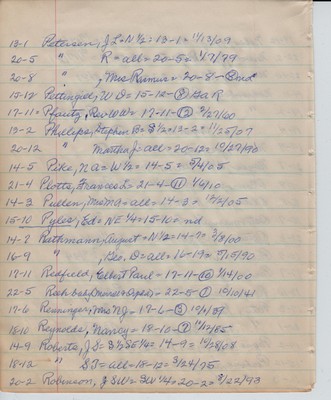 13-1 Petersen, J L = N 1/2 = 13-1 = 11/13/09
20-5 " R = all = 20-5 = 1/17/99
20-8 " , Mrs Rasmus = 20-8 -
15-12 Pettingill, W D = 15-12 = G a R
17-11 = Pfautz, Rev W W = 17-11 - 2/27/00
13-2 Phillips, Stephen B = S 1/2 = 13-2 = 11/25/07
20-12 " Martha J = all = 20-12 = 10/29/90
14-5 Pike, N A = W 1/2 = 14-5 = 5/4/05
21-4 Plotts, Frances L = 21-4 - 11 1/6/10
14-3 Pullen, Miss Ma = all = 14-3 = 10/12/05
15-10 Pyles, Ed = NE 1/4 = 15-10 = nd
14-7 Rathmann, August = N 1/2 = 14-7 = 3/8/00
16-9 " , Geo, D = all = 16-19 = 9/15/90
17-11 Redfield, Elbert Paul = 17-11 - 6 1/14/00
22-5 Rosh body = 22-5 - 1 10/10/41
17-6 Renninger, Miss N J = 17-6 - 3
18-10 Reynolds, Nancy = 18-10 -
14-9 Roberts, J S = S 1/2 SE 1/4 2 14-9 = 10/28/08
18-12 " S T = all = 18-12 = 3/24/75
20-2 Robinson, J SW = SW 1/4 = 20-2 = 3/22/93